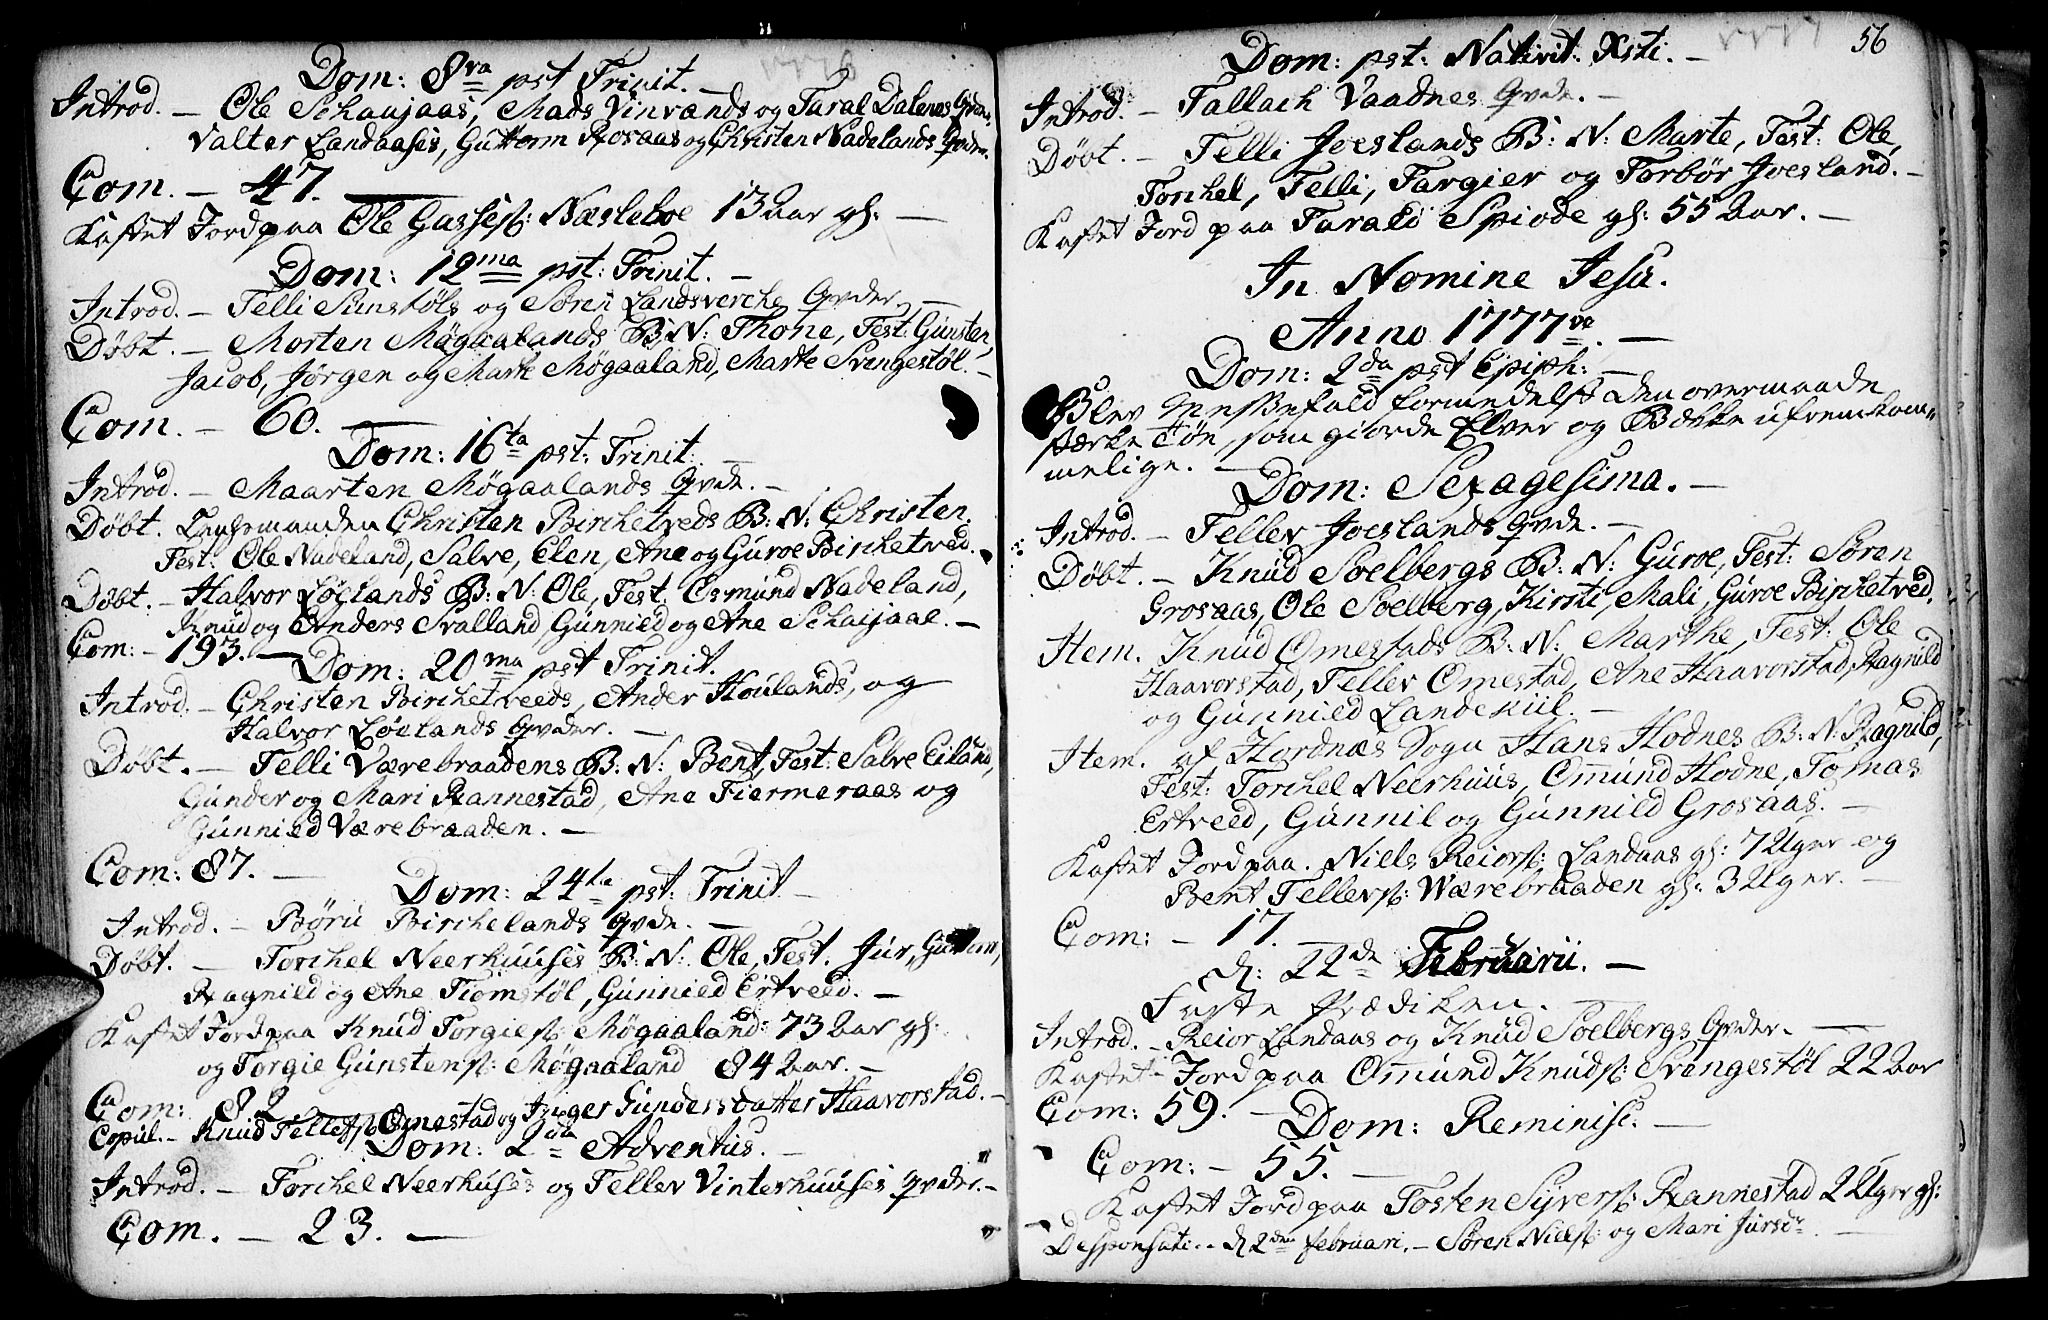 1776
Dom: 8va pst Trinit. –
Introd. – Ole Schaujaas, Mads Vinrands og Taral Dalenes Qvdr.
Valter Landaases, Guttorm Rosaas og Christen Nadelands Qvdr.
Com. – 47. –
Kastet Jord paa Ole Gasses: Næsleboe 13 aar gl: –
Dom: 12ma pst: Trinit. –
Introd. – Telli Sunstøls og Søren Landsverchs Qvder. –
Døbt. – Morten Mögaalands B: N: Thone, Test: Günsten,
Jacob, Jørgen og Marte Mögaaland, Marte Svingestøl. –
Com. – 60. –
Dom: 16ta pst: Trinit: –
Introd. – Maarten Mögaalands Qvde. –
Døbt. Lensmanden Christen Birchetveds B: N: Christen.
Test: Ole Nadeland, Salve, Elen, Ane og Guroe Birchetved.
Døbt. – Halvor Løelands B: N: Ole, Test. Osmund Nadeland,
Knud og Anders Svalland, Gunnild og Ane Schaujaae. –
Com: – 193. –
Dom: 20ma pst Trinit.
Introd. – Christen Birchetveeds, Ander Houlands, og
Halvor Løelands Qvder. –
Døbt. – Telli Værebraadens B: N: Bent, Test: Salve Eiland,
Gunder og Mari Rannestad, Ane Fiermeraas og
Gunnild Værebraaden. –
Com: 87. –
Dom: 24ta pst: Trinit –
Introd. – Børu Birchelands Qvde. –
Døbt. – Torchel Neerhuuses B: N: Ole, Test. Jur, Guttorm,
Ragnild og Ane Tiomstøl, Gunnild Ertveed. –
Kastet Jord paa Knud Torgies: Mögaaland: 73 aar gl:
og Torgie Gunstens: Mögaaland 84 aar. –
Com: 82
Copul. – Knud Tellefs: Omestad og Inger Gundersdatter Haavorstad. –
Dom: 2da Adventus. –
Introd. – Torchel Neerhuses og Tellev Vinterhuuses Qvder. –
Com. – 23. –
1777
56
Dom: pst: Nativit: Xsti. –
Introd. – Tallach Vaadnes Qvde. –
Døbt. – Telli Joeslands B: N: Marte, Test: Ole,
Torchel, Telli, Targier og Torbør Joesland. –
Kastet Jord paa Tarald Spiode gl: 55 aar. –
In Nomine Jesu.
Anno 1777de. –
Dom: 2da pst Epiph: –
Blev Messefald formedelst den overmaade
stærke Tøe, som giorde Elver og Bække ufremkom=
melige. –
Dom: Sexagesima. –
Introd. – Tellev Joeslands Qvde. –
Døbt. – Knud Soelbergs B: N: Guroe, Test: Søren
Grosaas, Ole Soelberg, Kirsti, Mali, Guroe Birchetved.
Item. Knud Omestads B: N: Marthe, Test: Ole
Haavorstad, Tellev Omestad, Ane Haavorstad, Ragnild
og Gunnild Landekiil. –
Item. af Hordnæs Sogn Hans Hodnes B: N: Ragnild,
Test: Torchel Neerhuus, Omund Hodne, Tomas
Ertveed, Gunnil og Gunnild Grosaas. –
Kastet Jord paa. Niels Reiors: Landaas gl: 7 Uger og
Bent Tellevs: Wærebraaden gl: 3 Uger. –
Com: – 17. –
d: 22de Februarii. –
Faste Prædiken. –
Introd. – Reior Landaas og Knud Soelbergs Qvder. –
Kastet Jord paa Omund Knuds: Svingestøl 22 aar
Com: 59. –
Dom: Reminisc: –
Com: – 55. –
Kastet Jord paa Tosten Syvers: Rannestad 2 Uger gl:
Desponsati. – d 2den februari. – Søren Niels: og Mari Jursdr –